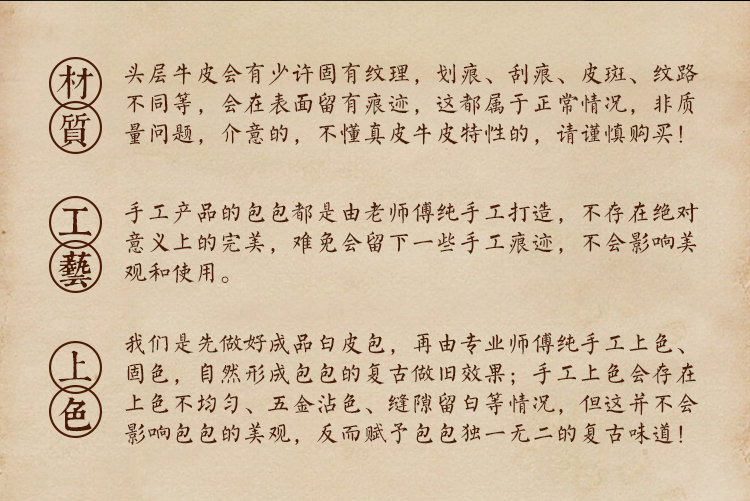 材質
头层牛皮会有少许固有纹理，划痕、刮痕、皮斑、纹路
不同等，会在表面留有痕迹，这都属于正常情况，非质
量问题，介意的，不懂真皮牛皮特性的，请谨慎购买！
工藝
手工产品的包包都是由老师傅纯手工打造，不存在绝对
意义上的完美，难免会留下一些手工痕迹，不会影响美
观和使用。
上色
我们是先做好成品白皮包，再由专业师傅纯手工上色、
固色，自然形成包包的复古做旧效果；手工上色会存在
上色不均匀、五金沾色、缝隙留白等情况，但这并不会
影响包包的美观，反而赋予包包独一无二的复古味道！